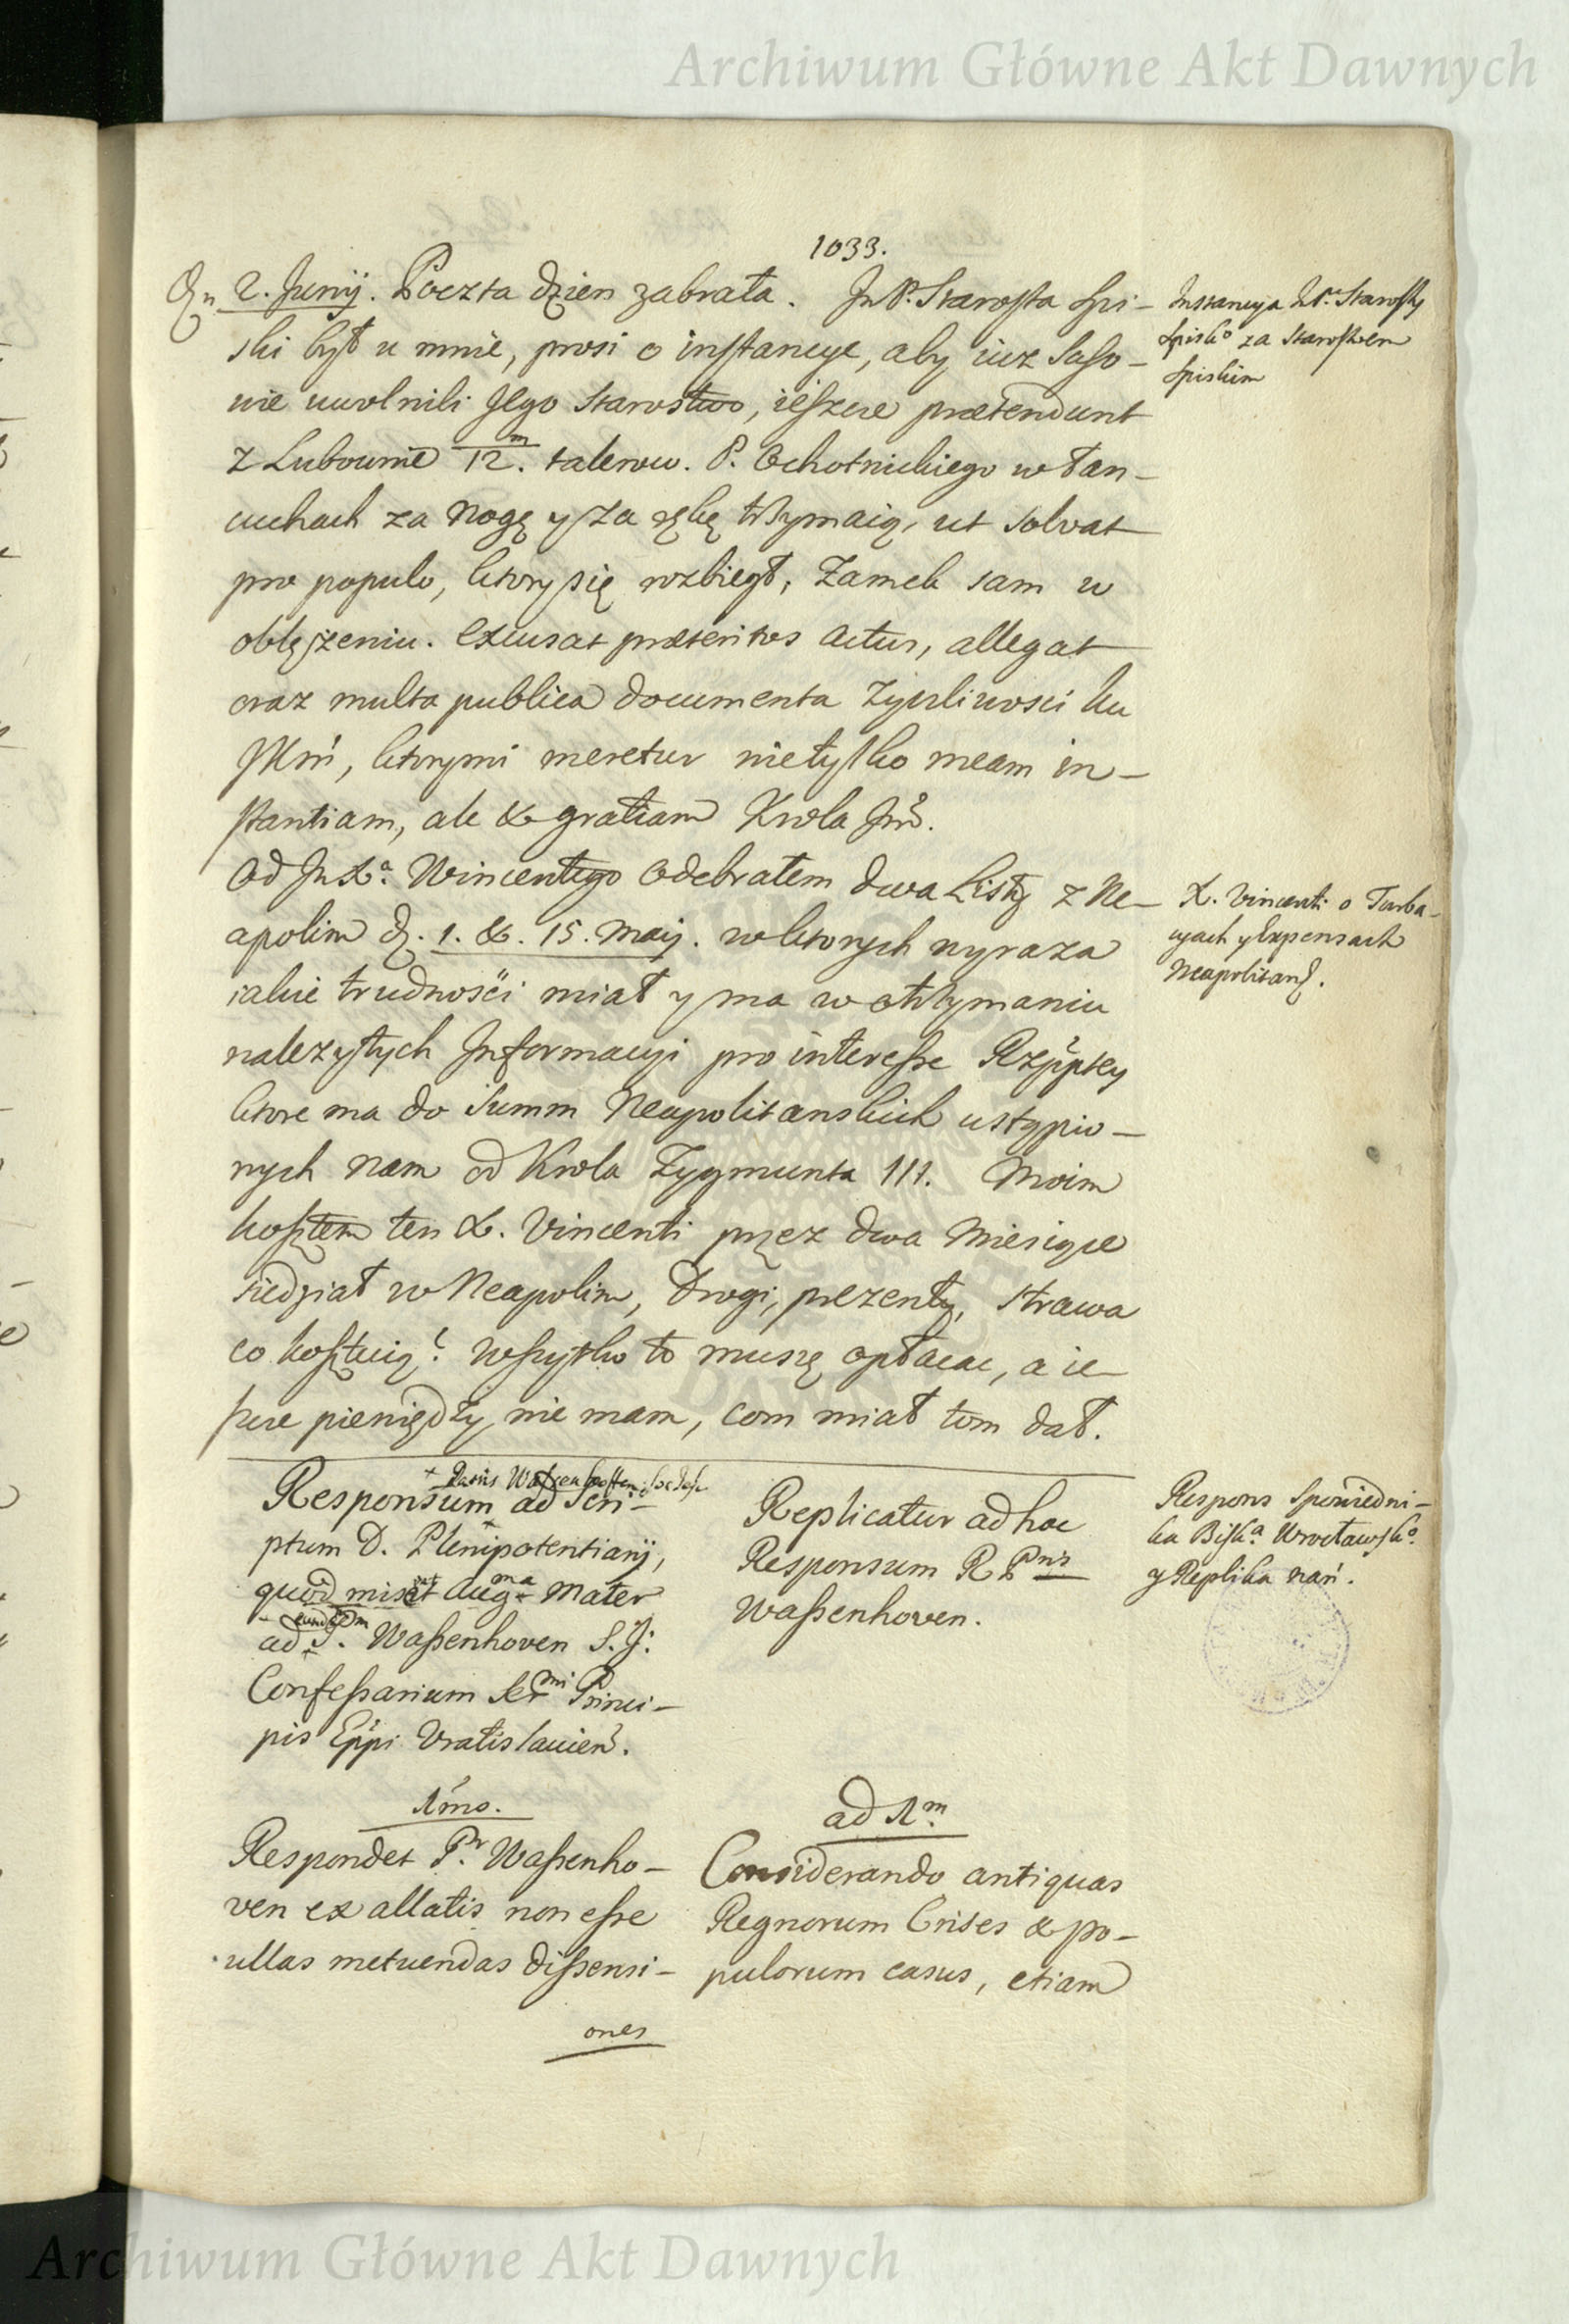 Archiwum Główne Akt Dawnych
1033.
Dn. 2. Junij. Poczta dzien zabrała. Jm P. Starosta Spi-
ski był u mnie, prosi o instancye, aby iuz Saso-
nie uwolnili Jego Starostwo, ieszcze prætendunt
z Lubownie 12.m talerow. P. Ochotnickiego w łan-
cuchach za nogę y za rękę trzymaią, ut solvat
pro populo, ktory się rozbiegł, Zamek sam w
oblężeniu. Excusat præteritos actus, allegat
oraz multa publica documenta Zyczliwosci ku
JKM, ktorymi meretur nietylko meam in-
stantiam, ale & gratiam Krola Jmci.
Od Jm Xa. Wincentego Odebrałem dwa Listy z Ne-
apolim d. 1. &. 15. Maij. w ktorych wyraza
iakie trudności miał y ma w otrzymaniu
nalezytych Informacyi pro interesse Rzpptey
ktore ma do Summ Neapolitanskich ustąpio-
nych nam od Krola Zygmunta III. Moim
kosztem ten X. Vincenti przez dwa Miesiące
siedział w Neapolim, Drogi, prezenty, strawa
co kosztuią? wszystko to muszę opłacac, a ie-
szcze pieniędzy nie mam, com miał tom dał.
Instancya JmPa. Starosty
Spiskgo za Starostwem
Spiskim
X. Vincenti o Turba-
cyach y Expensach
Neapolitanś.
+ Patris Wassenhoffen Soc Jesu
Responsum ad Scri-
ptum D. Plenipotentiarij,
quod misit Augma Mater
ad eundem P. Wassenhoven S. J:
Confessarium Sermi Princi-
pis Eppi Vratislavien.
Replicatur ad hoc
Responsum R Pris
Wassenhoven.
Respons Spowiedni-
ka Biska. Wrocławskgo.
y Replika nań.
1mo.
Respondet Pr. Wassenho-
ven ex allatis non esse
ullas metuendas dissensi-
ones
ad 1m.
Considerando antiquas
Regnorum Crises & po-
pulorum casus, etiam
Archiwum Główne Akt Dawnych